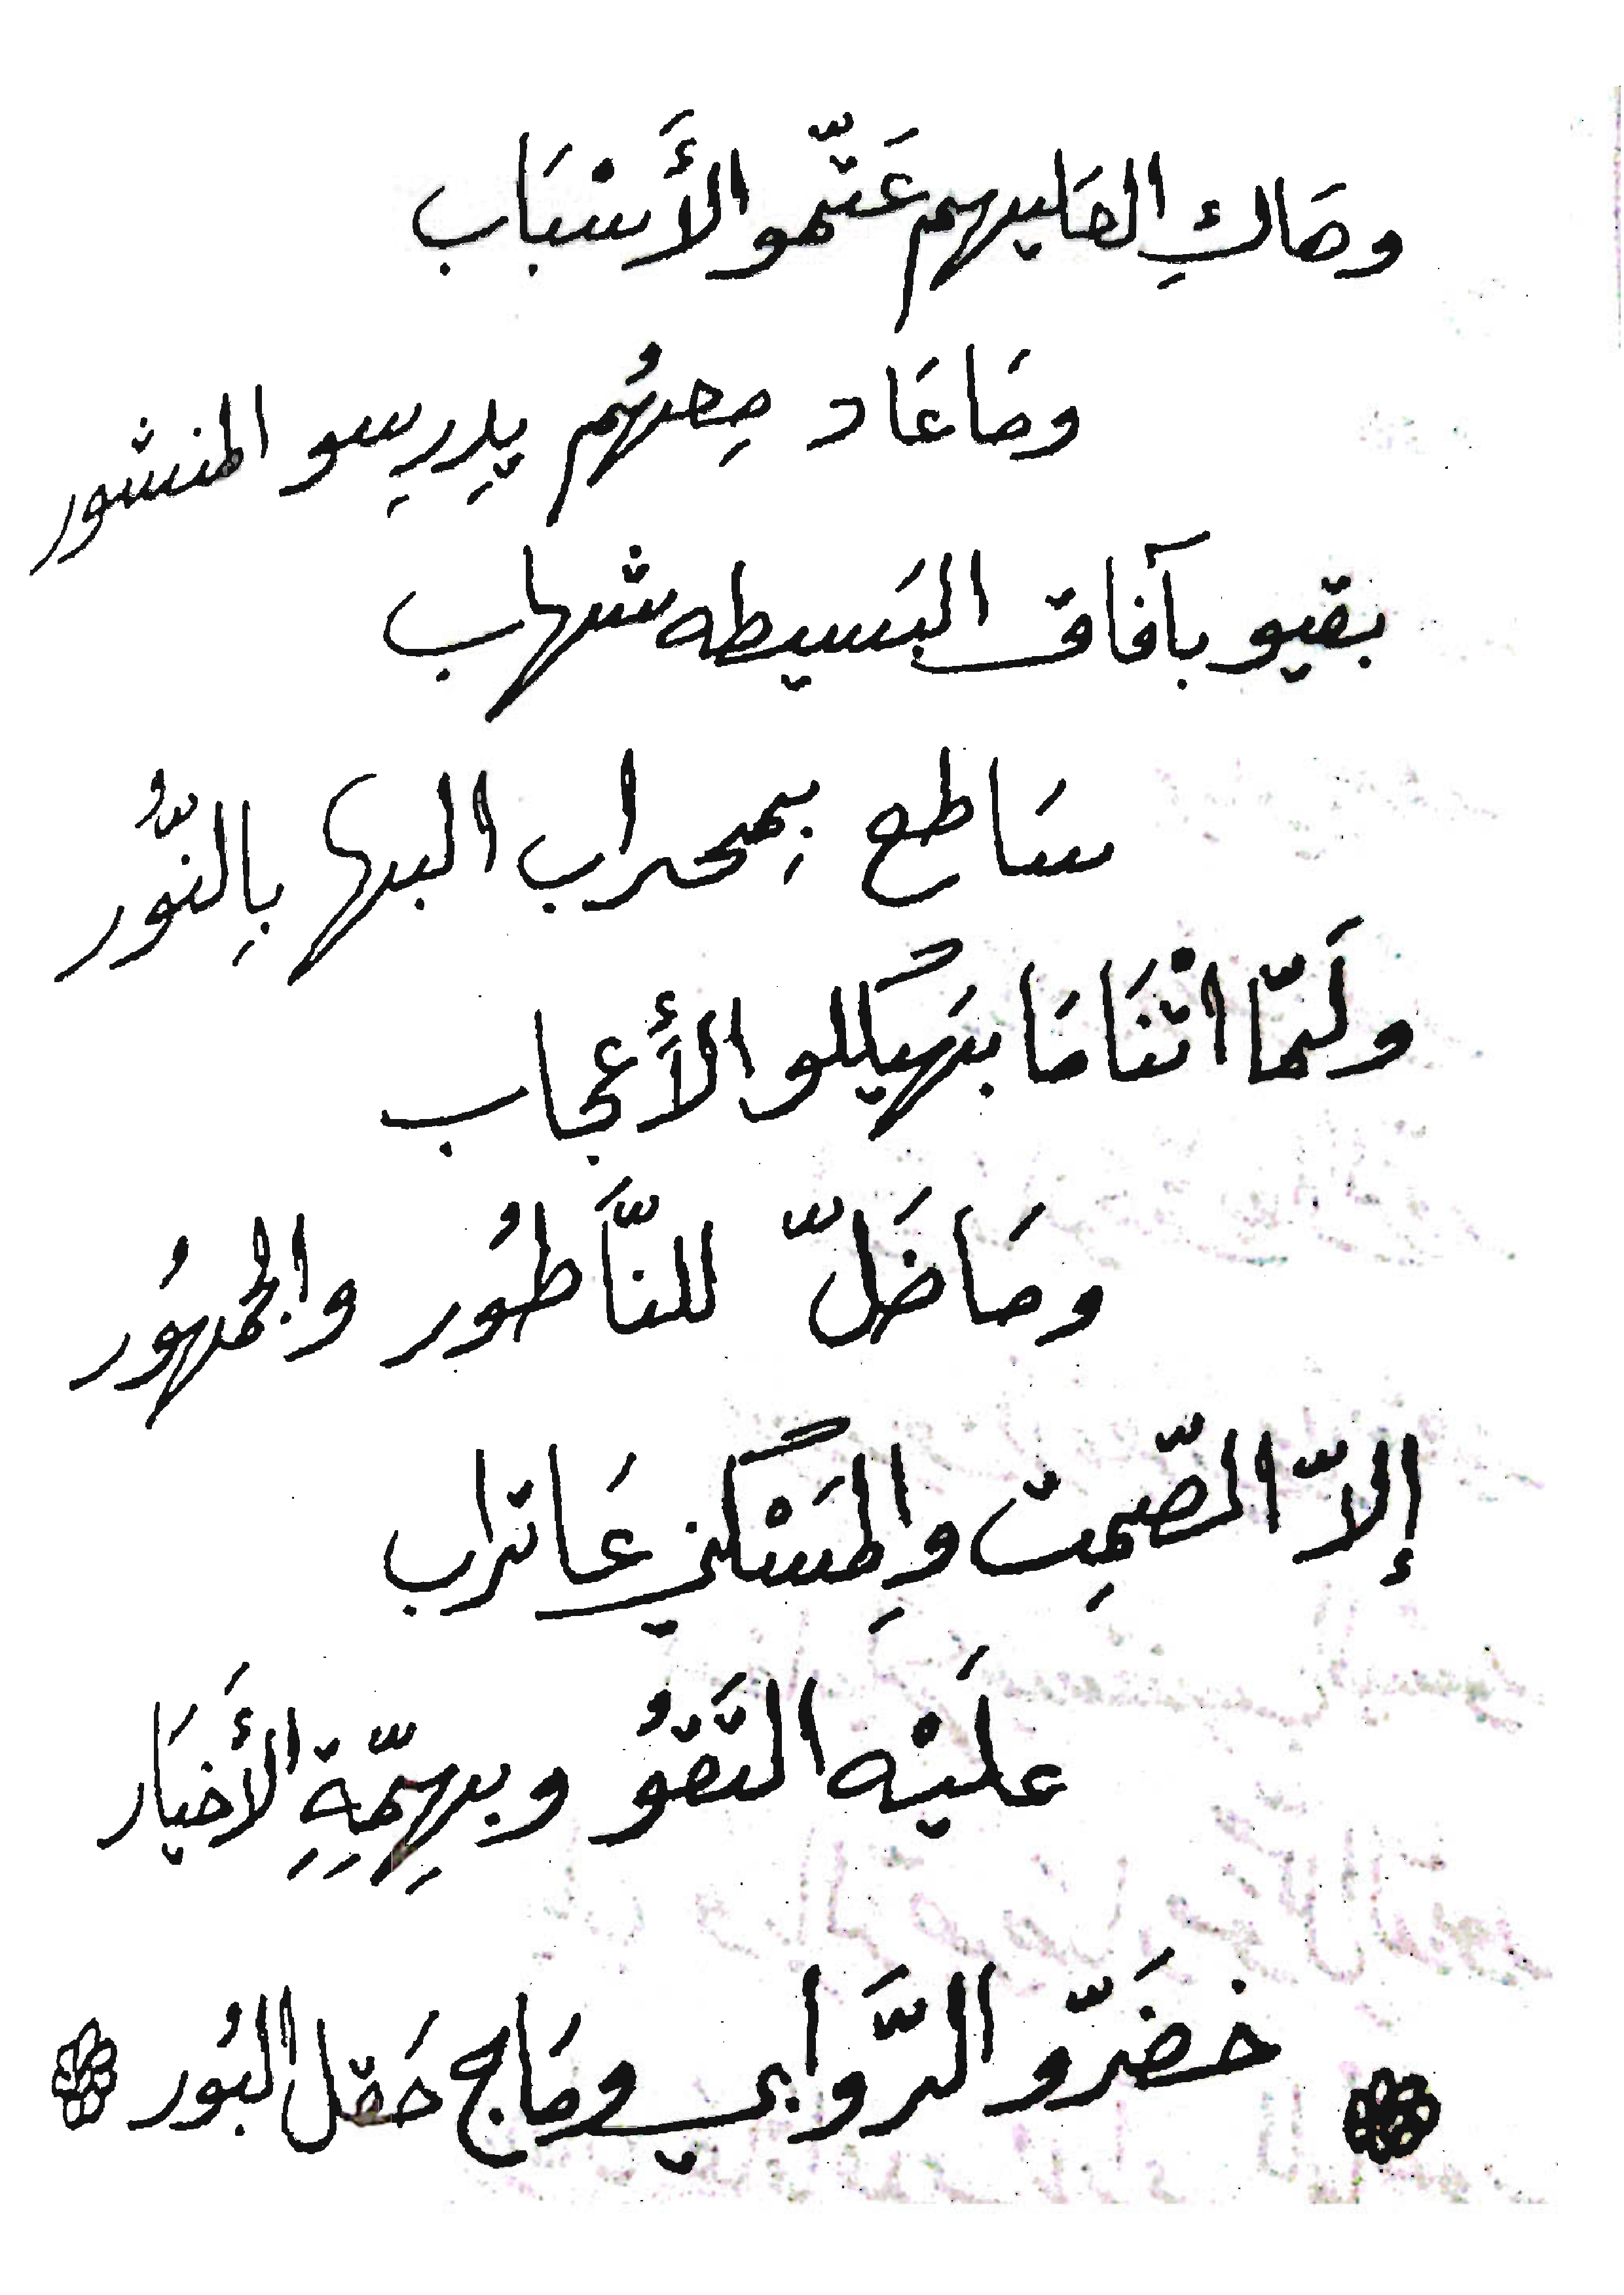 وهَاكِ الهَليهم عَتّمو الأَسْبَاب
ومَا عَاد مِعهُم يِدرِسو المنشور
بقيو بآفاق البَسيطه شهاب
سَاطع بِمحراب البها بِالنّوُر
ولَمّا اتْنَامَا بتهيكَللو الأَعجاب
ومَا ضَلّ للنَّاطُور والجمهُور
إلاّ الصّمِت والِمَسْكني عَا تراب
علَيْه التَقوُ وبهِمِّةِ الأَخيَار
خضَرّو الرَّوابي ومَاج حَقل البُور